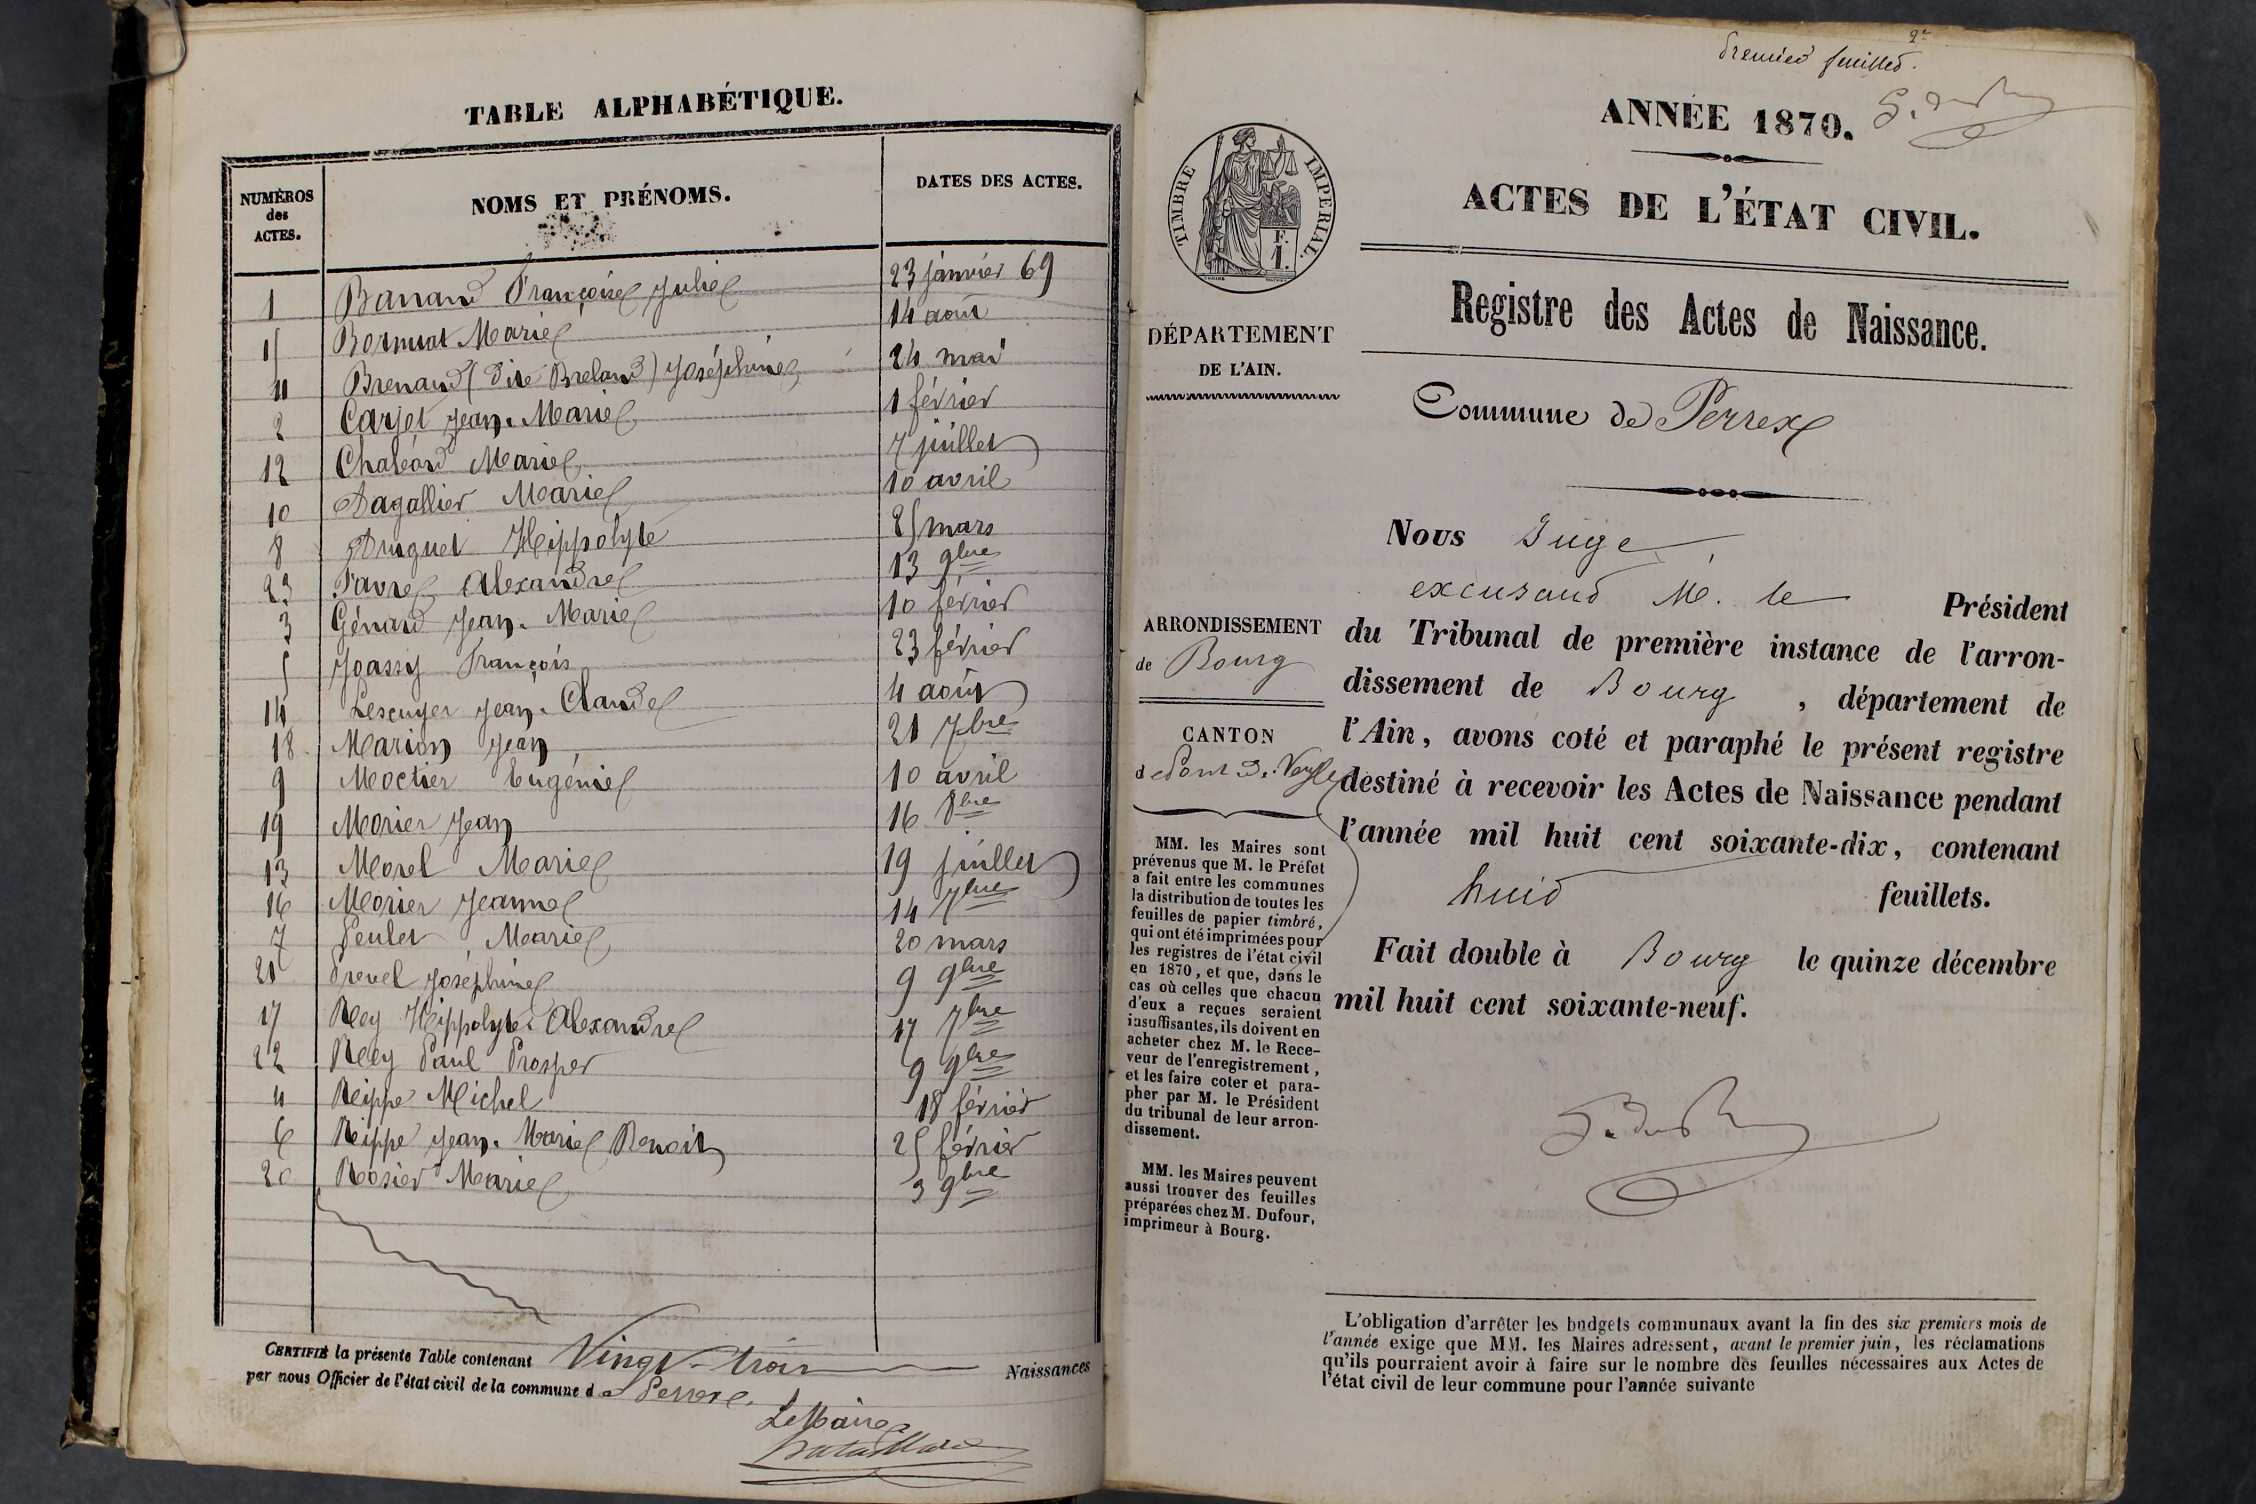 TABLE ALPHABÉTIQUE.
NUMÉROS des ACTES. NOMS ET PRÉNOMS. DATES DES ACTES.
1 Banand Françoise Julie 23 janvier 69
15 Bornuat Marie 14 août
11 Brenaud (dite Breland) Joséphine 24 mai
2 Carjet Jean-Marie 1 février
12 Chaléard Marie 7 juillet
10 Dagallier Marie 10 avril
8 Druguet Hippolyte 25 mars
23 Favre Alexandre 13 9bre
3 Génard Jean-Marie 10 février
5 Joassy François 23 février
14 Lescuyer Jean-Claude 4 août
18 Marion Jean 21 7bre
9 Moctier Eugénie 10 avril
19 Morier Jean 16 8bre
13 Morel Marie 19 juillet
16 Morier Jeanne 14 7bre
7 Peulet Marie 20 mars
21 Prevel Joséphine 9 9bre
17 Rey Hippolyte Alexandre 17 7bre
22 Rey Paul Prosper 9 9bre
4 Reippe Michel 18 février
6 Reippe Jean-Marie Benoit 25 février
20 Rosier Marie 3 9bre
CERTIFIÉ la présente Table contenant Vingt-trois Naissances
par nous Officier de l'état civil de la commune de Perrex.
Le Maire
Premier feuillet.
ANNÉE 1870.
ACTES DE L'ÉTAT CIVIL.
TIMBRE IMPERIAL.
F. 1.
Registre des Actes de Naissance.
DÉPARTEMENT
DE L'AIN.
Commune de Perrex
Nous Juge
excusant M. le Président
ARRONDISSEMENT
de Bourg
CANTON
de Pont-de-Veyle
du Tribunal de première instance de l'arron-
dissement de Bourg, département de
l'Ain, avons coté et paraphé le présent registre
destiné à recevoir les Actes de Naissance pendant
l'année mil huit cent soixante-dix, contenant
huit feuillets.
Fait double à Bourg le quinze décembre
mil huit cent soixante-neuf.
MM. les Maires sont
prévenus que M. le Préfet
a fait entre les communes
la distribution de toutes les
feuilles de papier timbré,
qui ont été imprimées pour
les registres de l'état civil
en 1870, et que, dans le
cas où celles que chacun
d'eux a reçues seraient
insuffisantes, ils doivent en
acheter chez M. le Rece-
veur de l'enregistrement,
et les faire coter et para-
pher par M. le Président
du tribunal de leur arron-
dissement.
MM. les Maires peuvent
aussi trouver des feuilles
préparées chez M. Dufour,
imprimeur à Bourg.
L'obligation d'arrêter les budgets communaux avant la fin des six premiers mois de
l'année exige que MM. les Maires adressent, avant le premier juin, les réclamations
qu'ils pourraient avoir à faire sur le nombre des feuilles nécessaires aux Actes de
l'état civil de leur commune pour l'année suivante